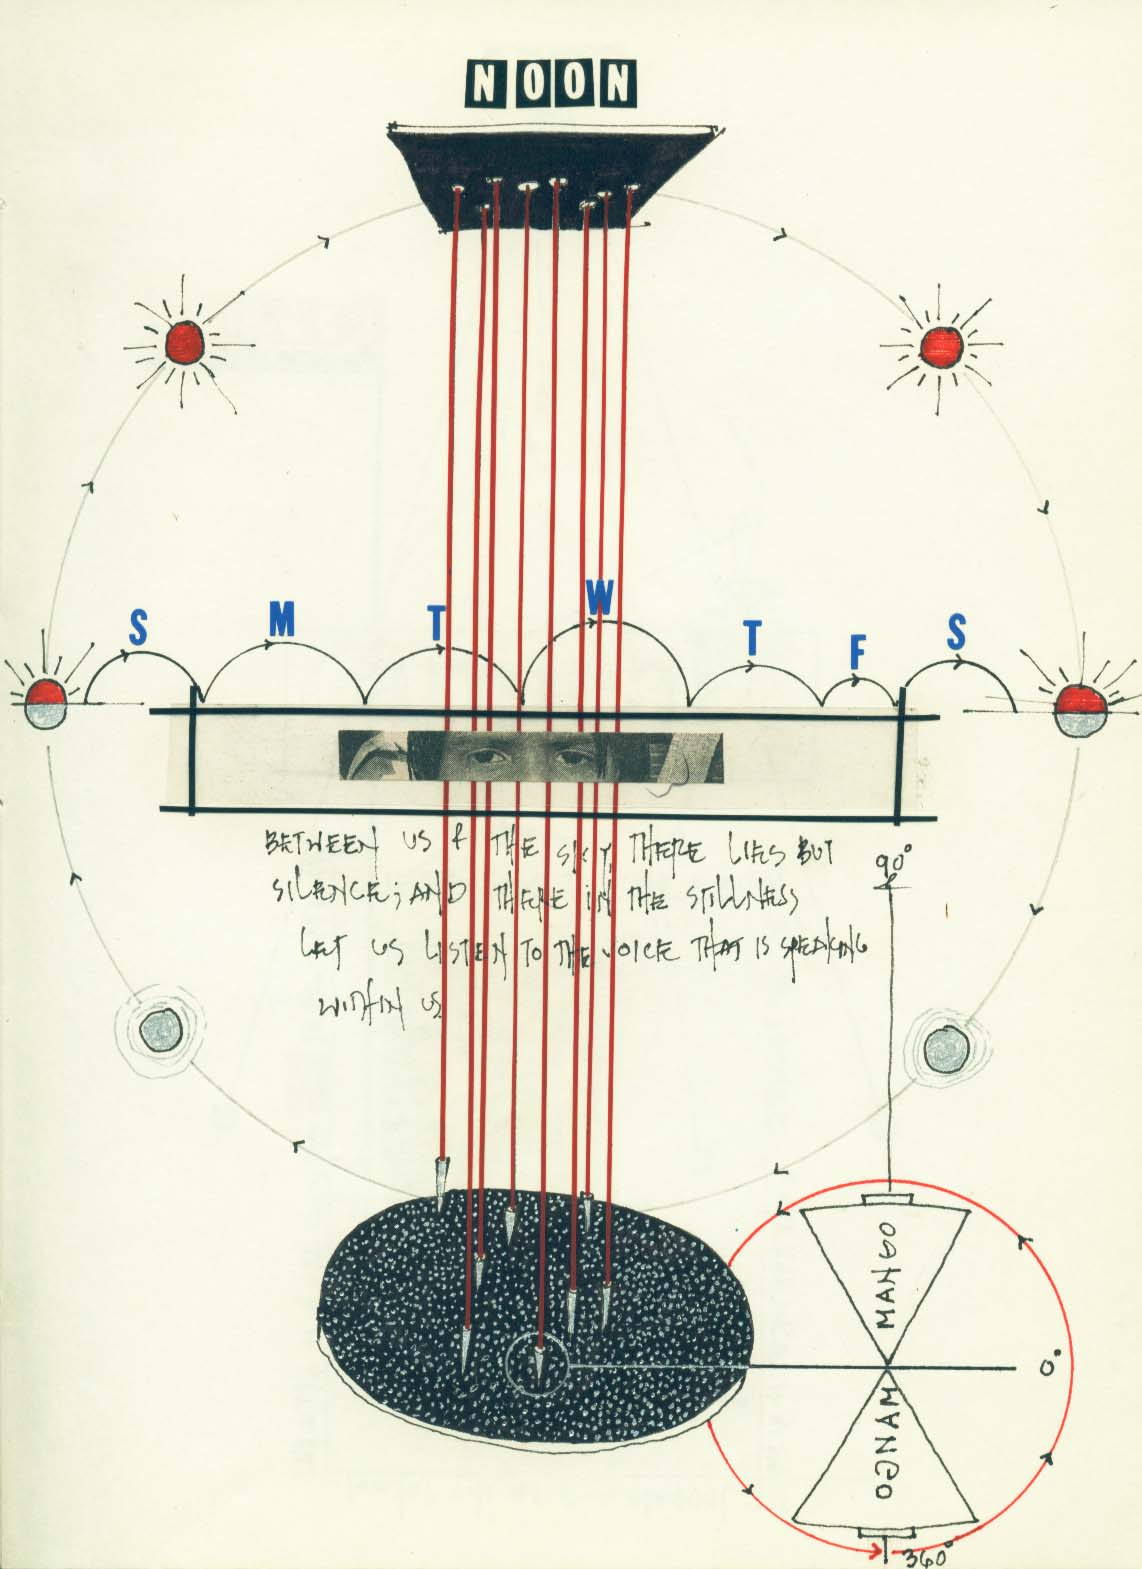 NOON
S M T W T F S
BETWEEN US & THE SKY, THERE LIES BUT
SILENCE; AND THERE IN THE STILLNESS
LET US LISTEN TO THE VOICE THAT IS SPEAKING
WITHIN US
90°
MANGO
0°
MANGO
360°